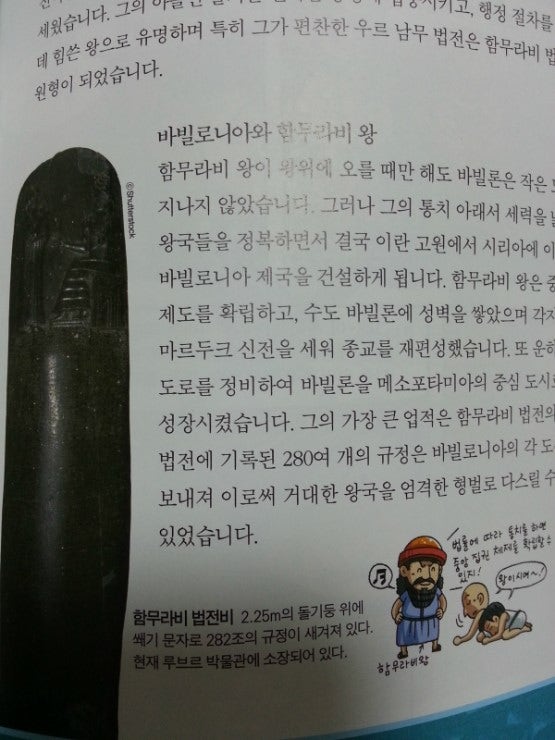 데 힘쓴 왕으로 유명하며 특히 그가 편찬한 우르 남무 법전은 함무라비 법
원형이 되었습니다.
바빌로니아와 함무라비 왕
함무라비 왕이 왕위에 오를 때만 해도 바빌론은 작은
지나지 않았습니다. 그러나 그의 통치 아래서 세력을
왕국들을 정복하면서 결국 이란 고원에서 시리아에 이
바빌로니아 제국을 건설하게 됩니다. 함무라비 왕은 중
제도를 확립하고, 수도 바빌론에 성벽을 쌓았으며 각지
마르두크 신전을 세워 종교를 재편성했습니다. 또 운하
도로를 정비하여 바빌론을 메소포타미아의 중심 도시로
성장시켰습니다. 그의 가장 큰 업적은 함무라비 법전의
법전에 기록된 280여 개의 규정은 바빌로니아의 각 도
보내져 이로써 거대한 왕국을 엄격한 형벌로 다스릴 수
있었습니다.
©Shutterstock
법률에 따라 통치를 하면
중앙 집권 체제를 확립할 수
있지!
왕이시여~!
함무라비왕
함무라비 법전비 2.25m의 돌기둥 위에
쐐기 문자로 282조의 규정이 새겨져 있다.
현재 루브르 박물관에 소장되어 있다.